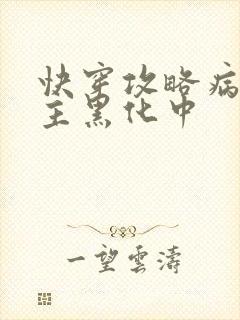 快穿攻略病
主黑化中
一望雲濤